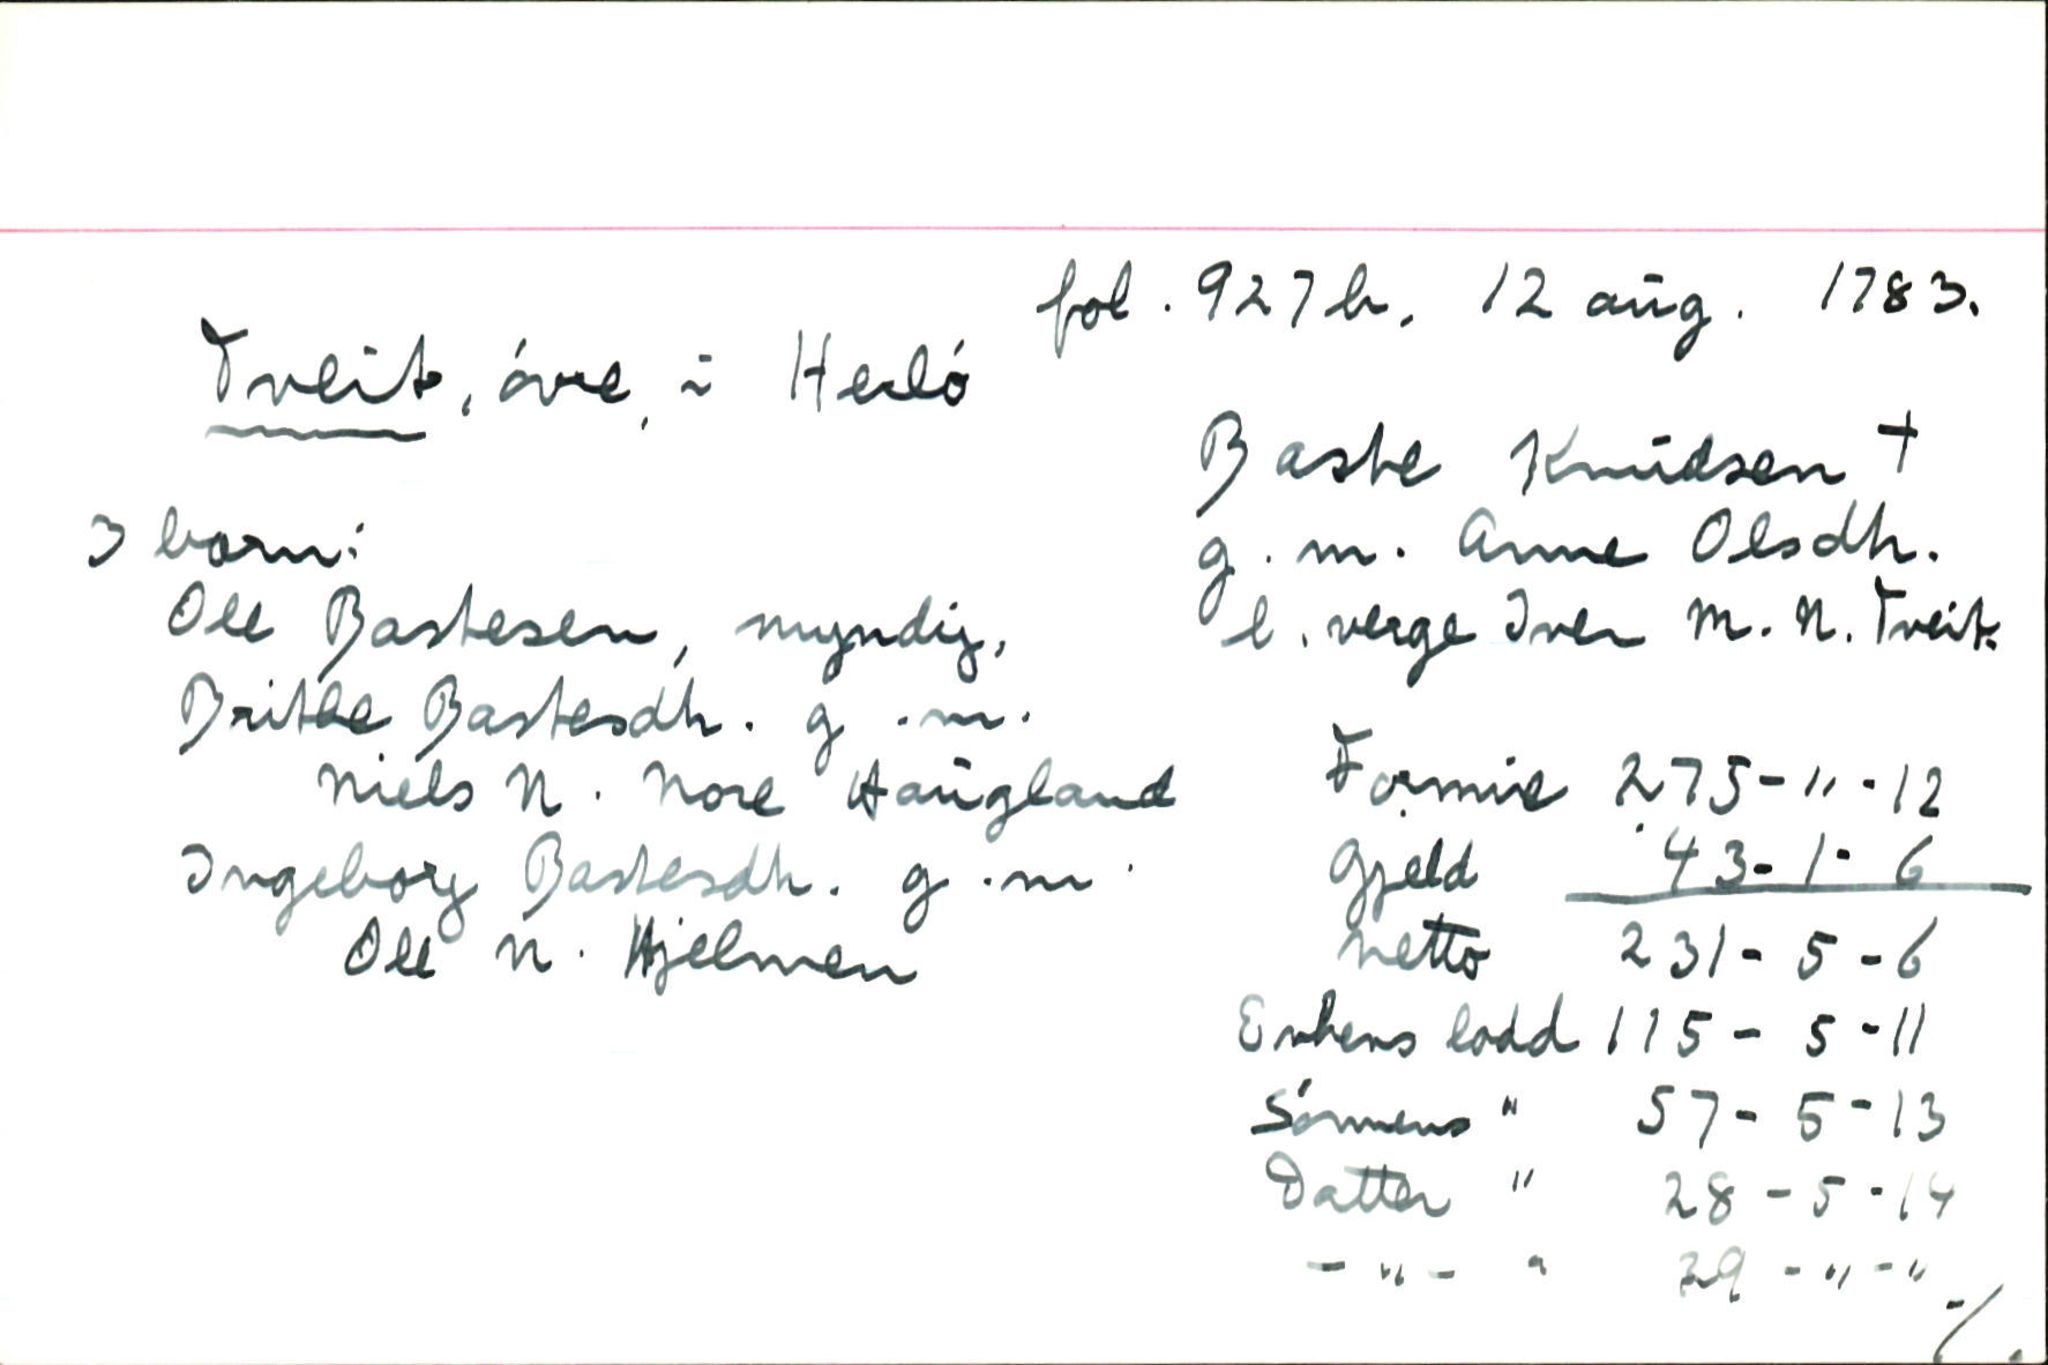 fol. 927 b, 12 aug. 1783.
Tveit, óvre, i Herló
Baste Knudsen †
g. m. Anne Olsdtr.
l. verge Iver M. N. Tveit.
3 born:
Ole Bastesen, myndig,
Brithe Bastesdtr. g. m.
Niels N. Nore Haugland
Ingeborg Bastesdtr. g. m.
Ole N. Hjelmen
Formue 275 - " - 12
Gjeld 43 - 1 - 6
netto 231 - 5 - 6
Enkens lodd 115 - 5 - 11
Sónnens " 57 - 5 - 13
Datter " 28 - 5 - 14
- " - " 29 - " - "
./.